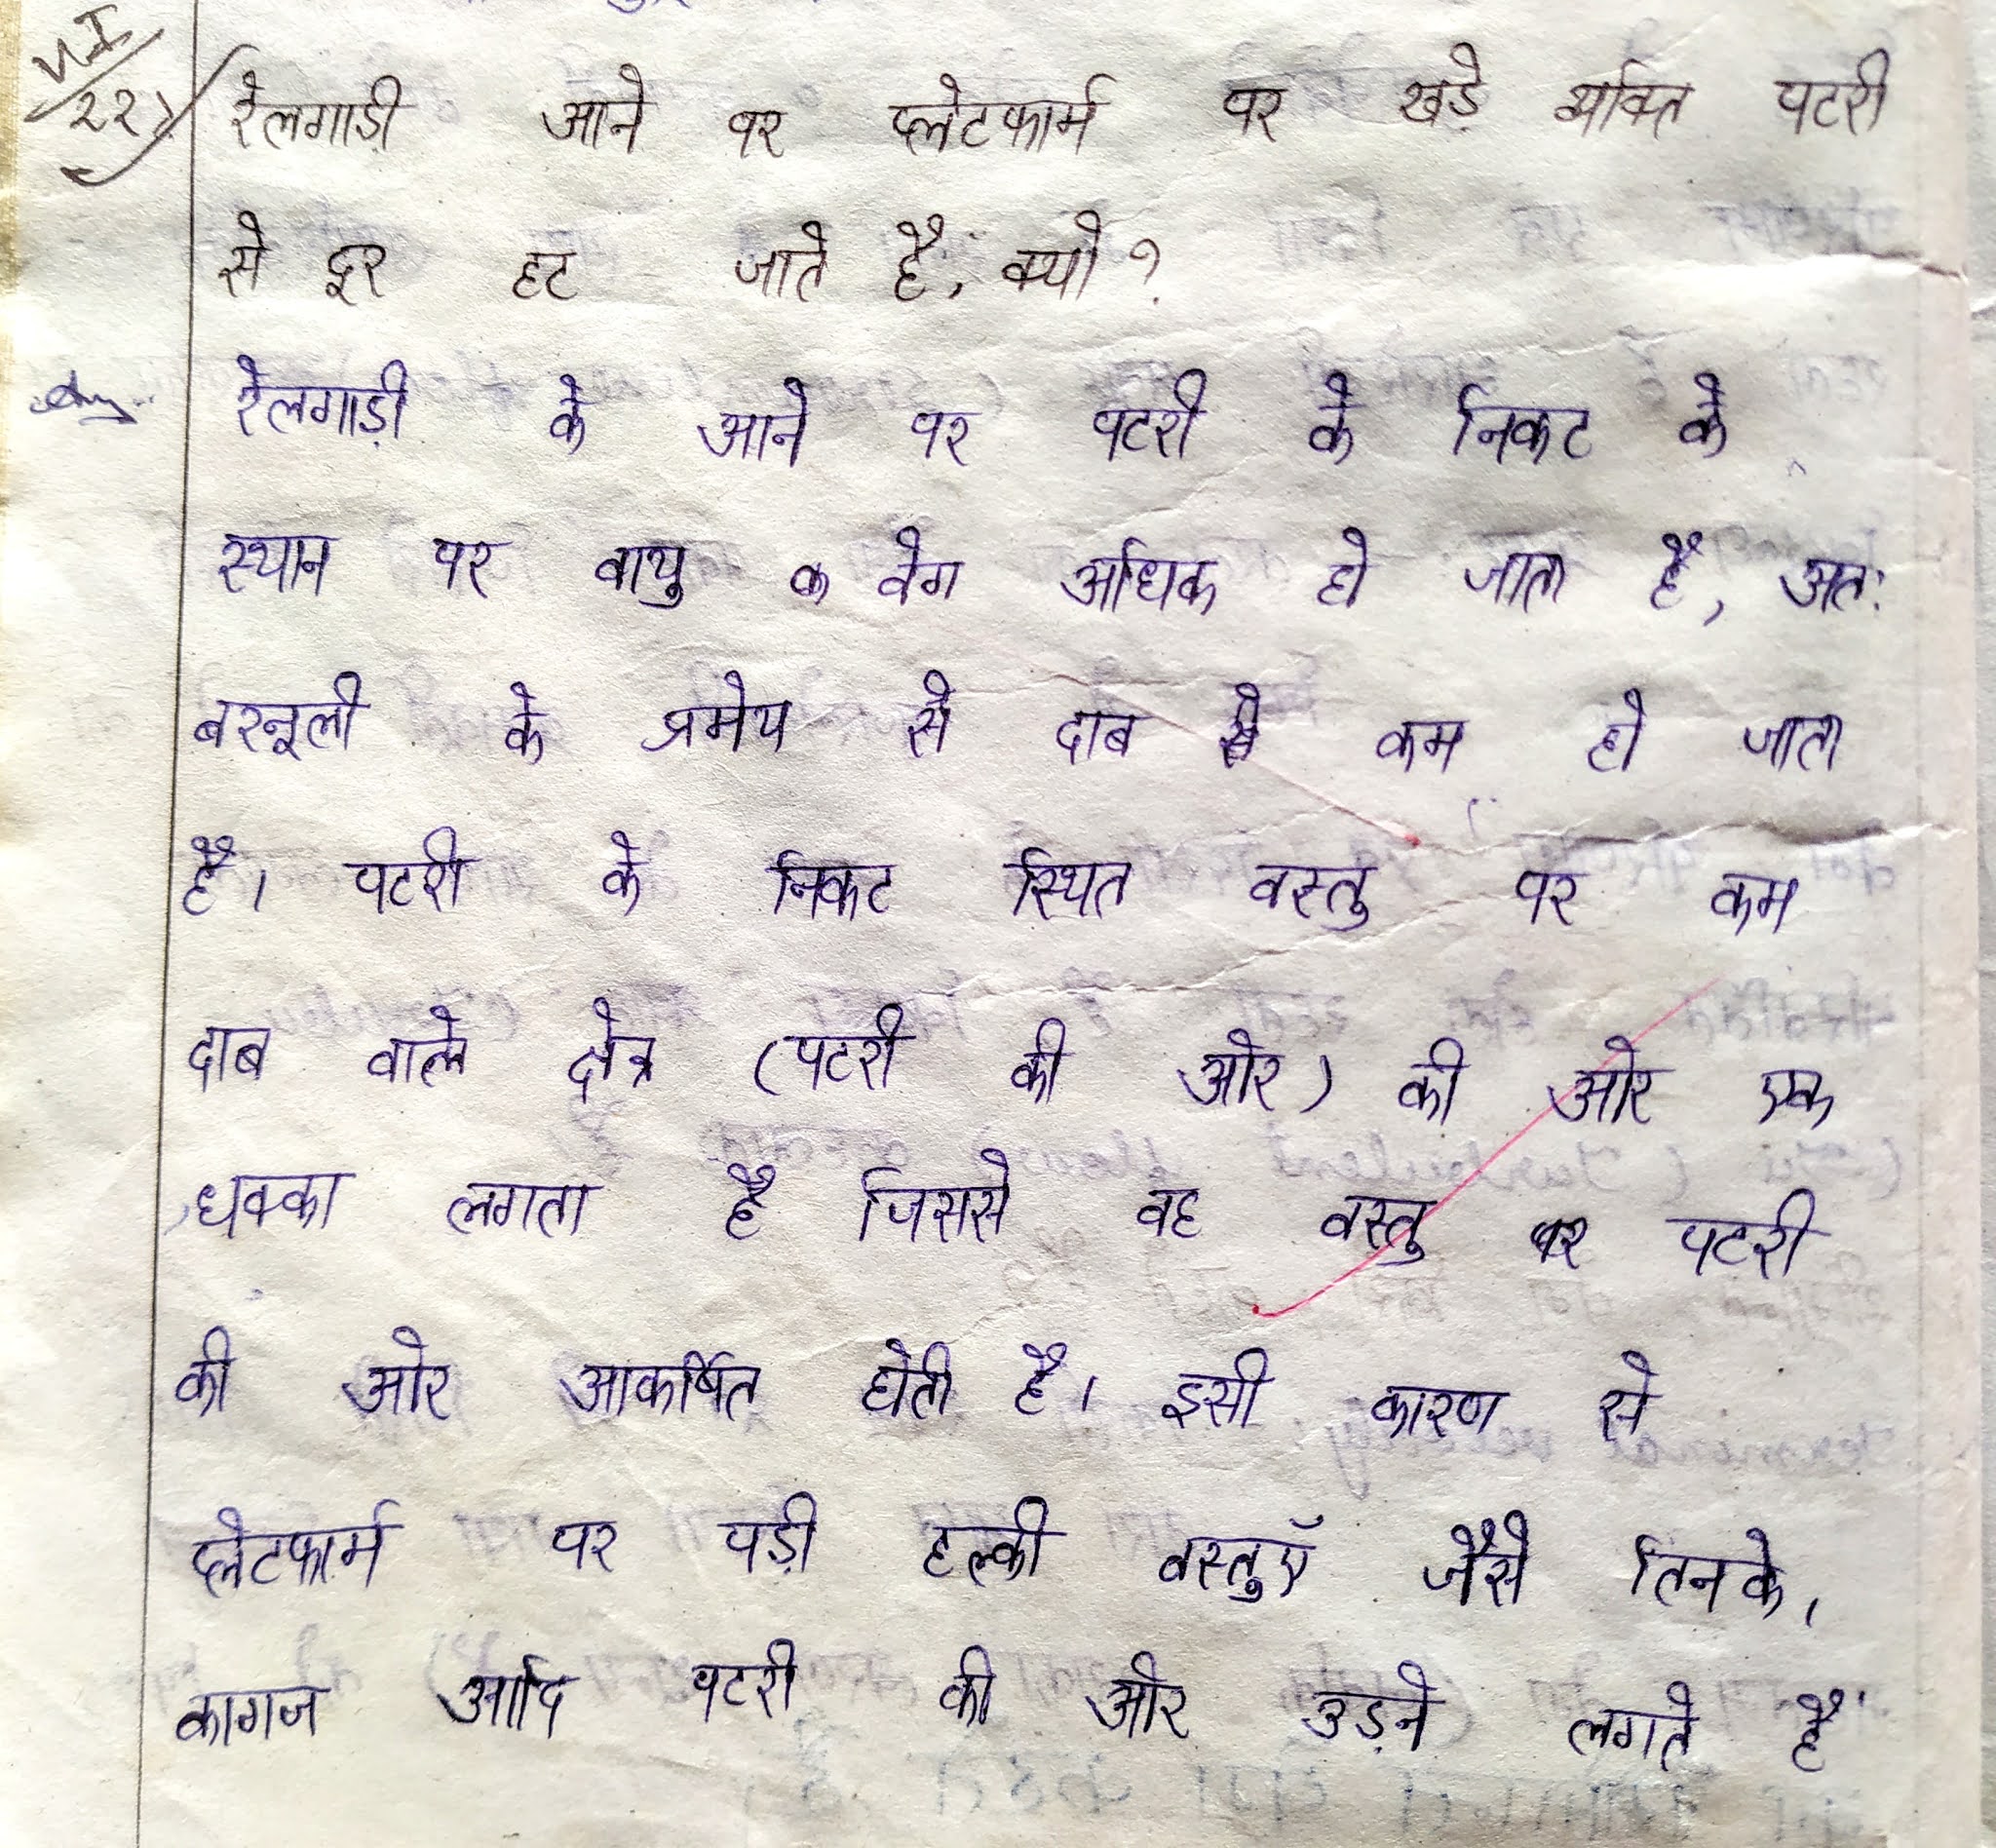 VI
22) रेलगाड़ी आने पर प्लेटफार्म पर खड़े व्यक्ति पटरी
से दूर हट जाते हैं, क्यों?
Ans. रेलगाड़ी के आने पर पटरी के निकट के
स्थान पर वायु क वेग अधिक हो जाता है, अतः
बरनूली के प्रमेय से दाब से कम हो जाता
है। पटरी के निकट स्थित वस्तु पर कम
दाब वाले क्षेत्र (पटरी की ओर) की ओर एक
धक्का लगता है जिससे वह वस्तु पर पटरी
की ओर आकर्षित होती है। इसी कारण से
प्लेटफार्म पर पड़ी हल्की वस्तुएँ जैसे तिनके,
कागज आदि पटरी की ओर उड़ने लगते हैं